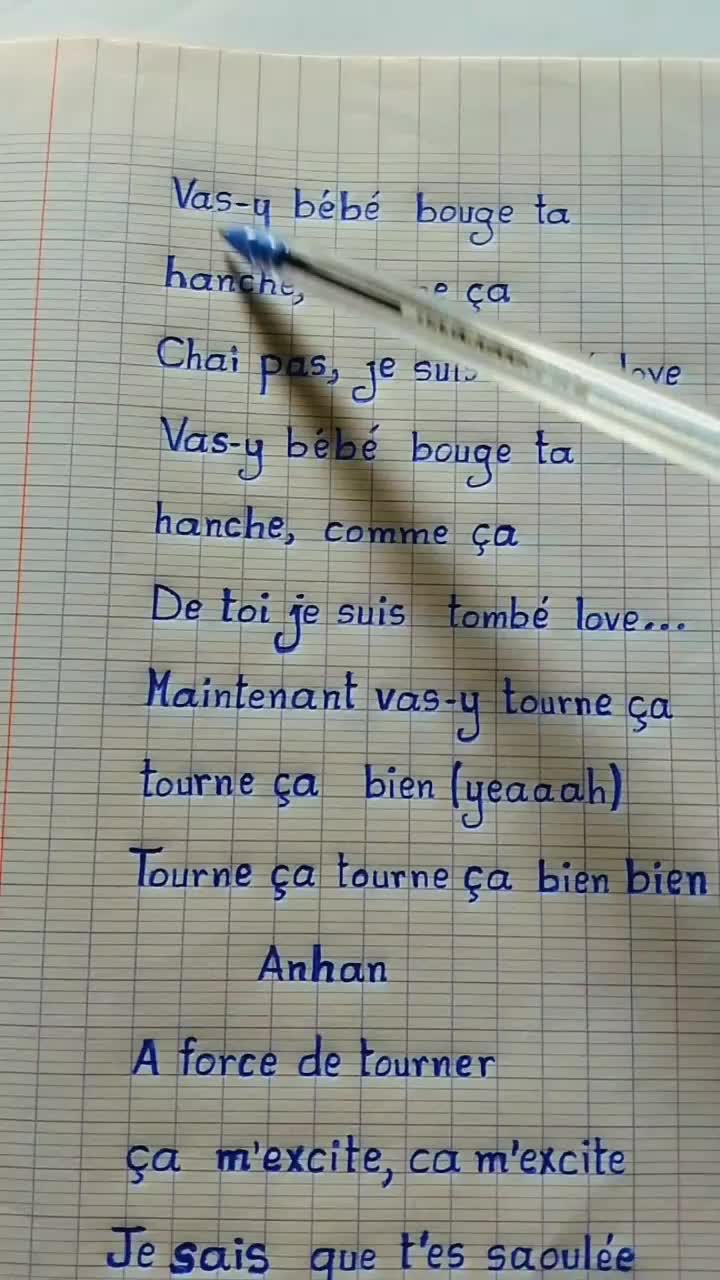 Vas-y bébé bouge ta
hanche, ça
Chai pas, je suis love
Vas-y bébé bouge ta
hanche, comme ça
De toi je suis tombé love...
Maintenant vas-y tourne ça
tourne ça bien (yeaaah)
Tourne ça tourne ça bien bien
Anhan
A force de tourner
ça m'excite, ca m'excite
Je sais que t'es saoulée